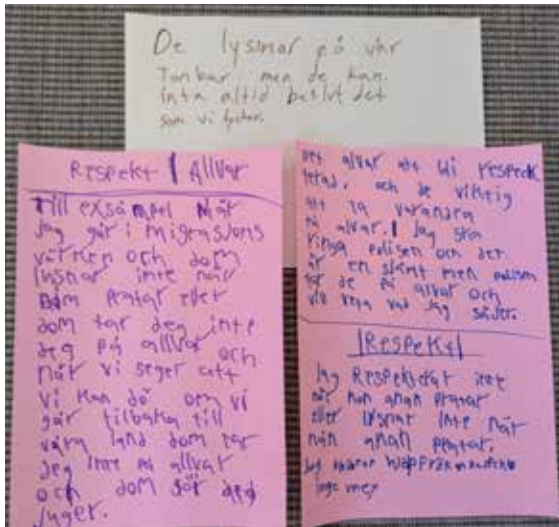 De lysnar på vår
Tankar men de kan
inta altid beslut det
som vi tycker.
Respekt | Allvar
Till exsämpel när
Jag går i migrasjons
värken och dom
lysnar inte när
dom pratar eller
dom tar deg inte
deg på allvar och
när vi seger att
vi kan dö om vi
går tilbaka till
våra land dom tar
deg inte på allvar
och dom sör deg
juger.
Det alvar att bli respeck
terad, och de viktig
att ta varandra
på alvar. Jag ska
ringa polisen och det
är en skämt men polisen
tar de på alvar och
vill veta vad jag säder.
|Respekt|
Jag Respekterar inte
när non anan pratar
eller lysnar inte när
nån anan pratar.
Jag
inge mer